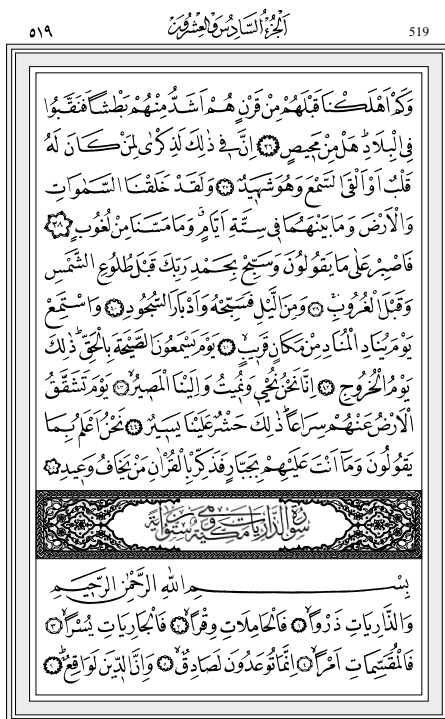 ٥١٩ اَلْجُزْءُ السَّادِسُ وَالْعِشْرُونَ 519
وَكَمْ اَهْلَكْنَا قَبْلَهُمْ مِنْ قَرْنٍ هُمْ اَشَدُّ مِنْهُمْ بَطْشًا فَنَقَّبُوا
فِي الْبِلَادِۜ هَلْ مِنْ مَحِيصٍ ﴿٣٦﴾ اِنَّ فِي ذٰلِكَ لَذِكْرٰى لِمَنْ كَانَ لَهُ
قَلْبٌ اَوْ اَلْقَى السَّمْعَ وَهُوَ شَهِيدٌ ﴿٣٧﴾ وَلَقَدْ خَلَقْنَا السَّمٰوَاتِ
وَالْاَرْضَ وَمَا بَيْنَهُمَا فِي سِتَّةِ اَيَّامٍۗ وَمَا مَسَّنَا مِنْ لُغُوبٍ ﴿٣٨﴾
فَاصْبِرْ عَلٰى مَا يَقُولُونَ وَسَبِّحْ بِحَمْدِ رَبِّكَ قَبْلَ طُلُوعِ الشَّمْسِ
وَقَبْلَ الْغُرُوبِۚ ﴿٣٩﴾ وَمِنَ الَّيْلِ فَسَبِّحْهُ وَاَدْبَارَ السُّجُودِ ﴿٤٠﴾ وَاسْتَمِعْ
يَوْمَ يُنَادِ الْمُنَادِ مِنْ مَكَانٍ قَرِيبٍۙ ﴿٤١﴾ يَوْمَ يَسْمَعُونَ الصَّيْحَةَ بِالْحَقِّۜ ذٰلِكَ
يَوْمُ الْخُرُوجِ ﴿٤٢﴾ اِنَّا نَحْنُ نُحْيِ وَنُمِيتُ وَاِلَيْنَا الْمَصِيرُۙ ﴿٤٣﴾ يَوْمَ تَشَقَّقُ
الْاَرْضُ عَنْهُمْ سِرَاعًاۜ ذٰلِكَ حَشْرٌ عَلَيْنَا يَسِيرٌ ﴿٤٤﴾ نَحْنُ اَعْلَمُ بِمَا
يَقُولُونَ وَمَا اَنْتَ عَلَيْهِمْ بِجَبَّارٍ فَذَكِّرْ بِالْقُرْاٰنِ مَنْ يَخَافُ وَعِيدِ ﴿٤٥﴾
سُورَةُ الذَّارِيَاتِ مَكِّيَّةٌ وَهِيَ سِتُّونَ اٰيَةً
بِسْمِ اللّٰهِ الرَّحْمٰنِ الرَّحِيمِ
وَالذَّارِيَاتِ ذَرْوًاۙ ﴿١﴾ فَالْحَامِلَاتِ وِقْرًاۙ ﴿٢﴾ فَالْجَارِيَاتِ يُسْرًاۙ ﴿٣﴾
فَالْمُقَسِّمَاتِ اَمْرًاۙ ﴿٤﴾ اِنَّمَا تُوعَدُونَ لَصَادِقٌۙ ﴿٥﴾ وَاِنَّ الدِّينَ لَوَاقِعٌۜ ﴿٦﴾